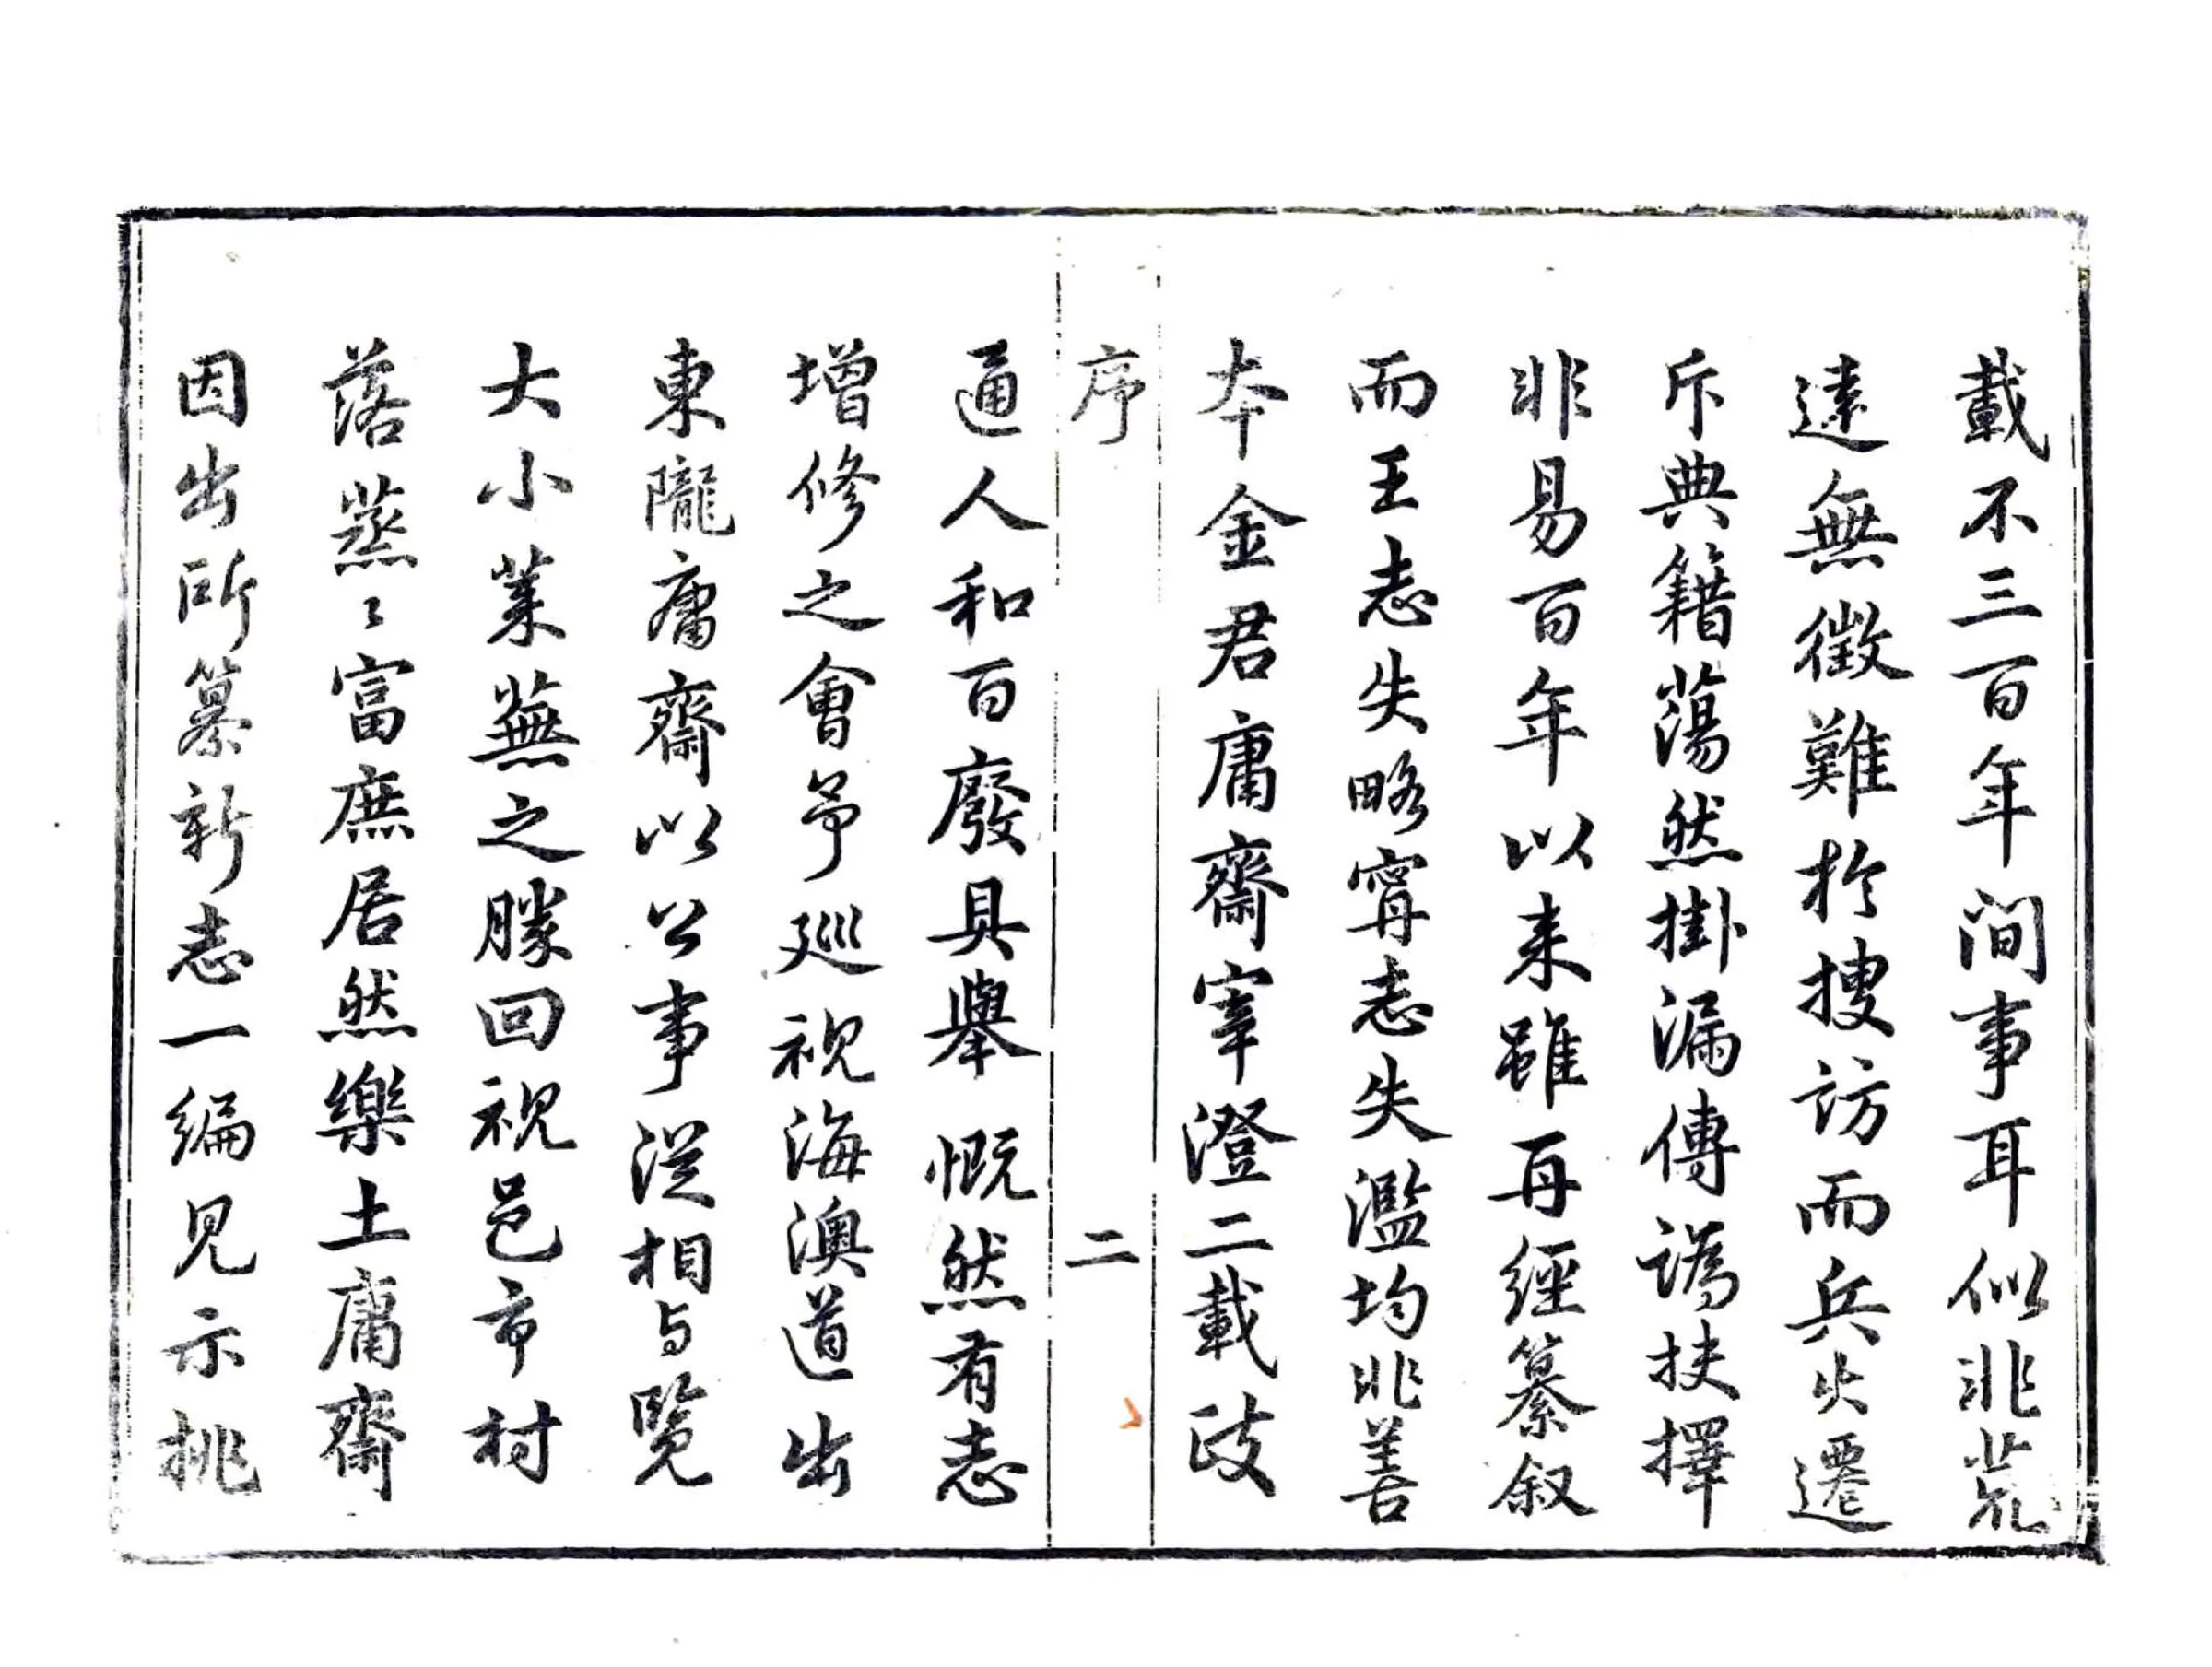 載不三百年間事耳似非荒
遠無徵難於搜訪而兵火遷
斥典籍蕩然掛漏傳譌抉擇
非易百年以来雖再經纂叙
而王志失略寧志失濫均非善
本金君庸齋宰澄二載政
序
二
通人和百廢具舉慨然有志
増修之會予廵視海澳道出
東隴庸齋以公事從相与覽
大小萊蕪之勝回視邑市村
落蒸〻富庶居然樂土庸齋
因出所纂新志一編見示挑